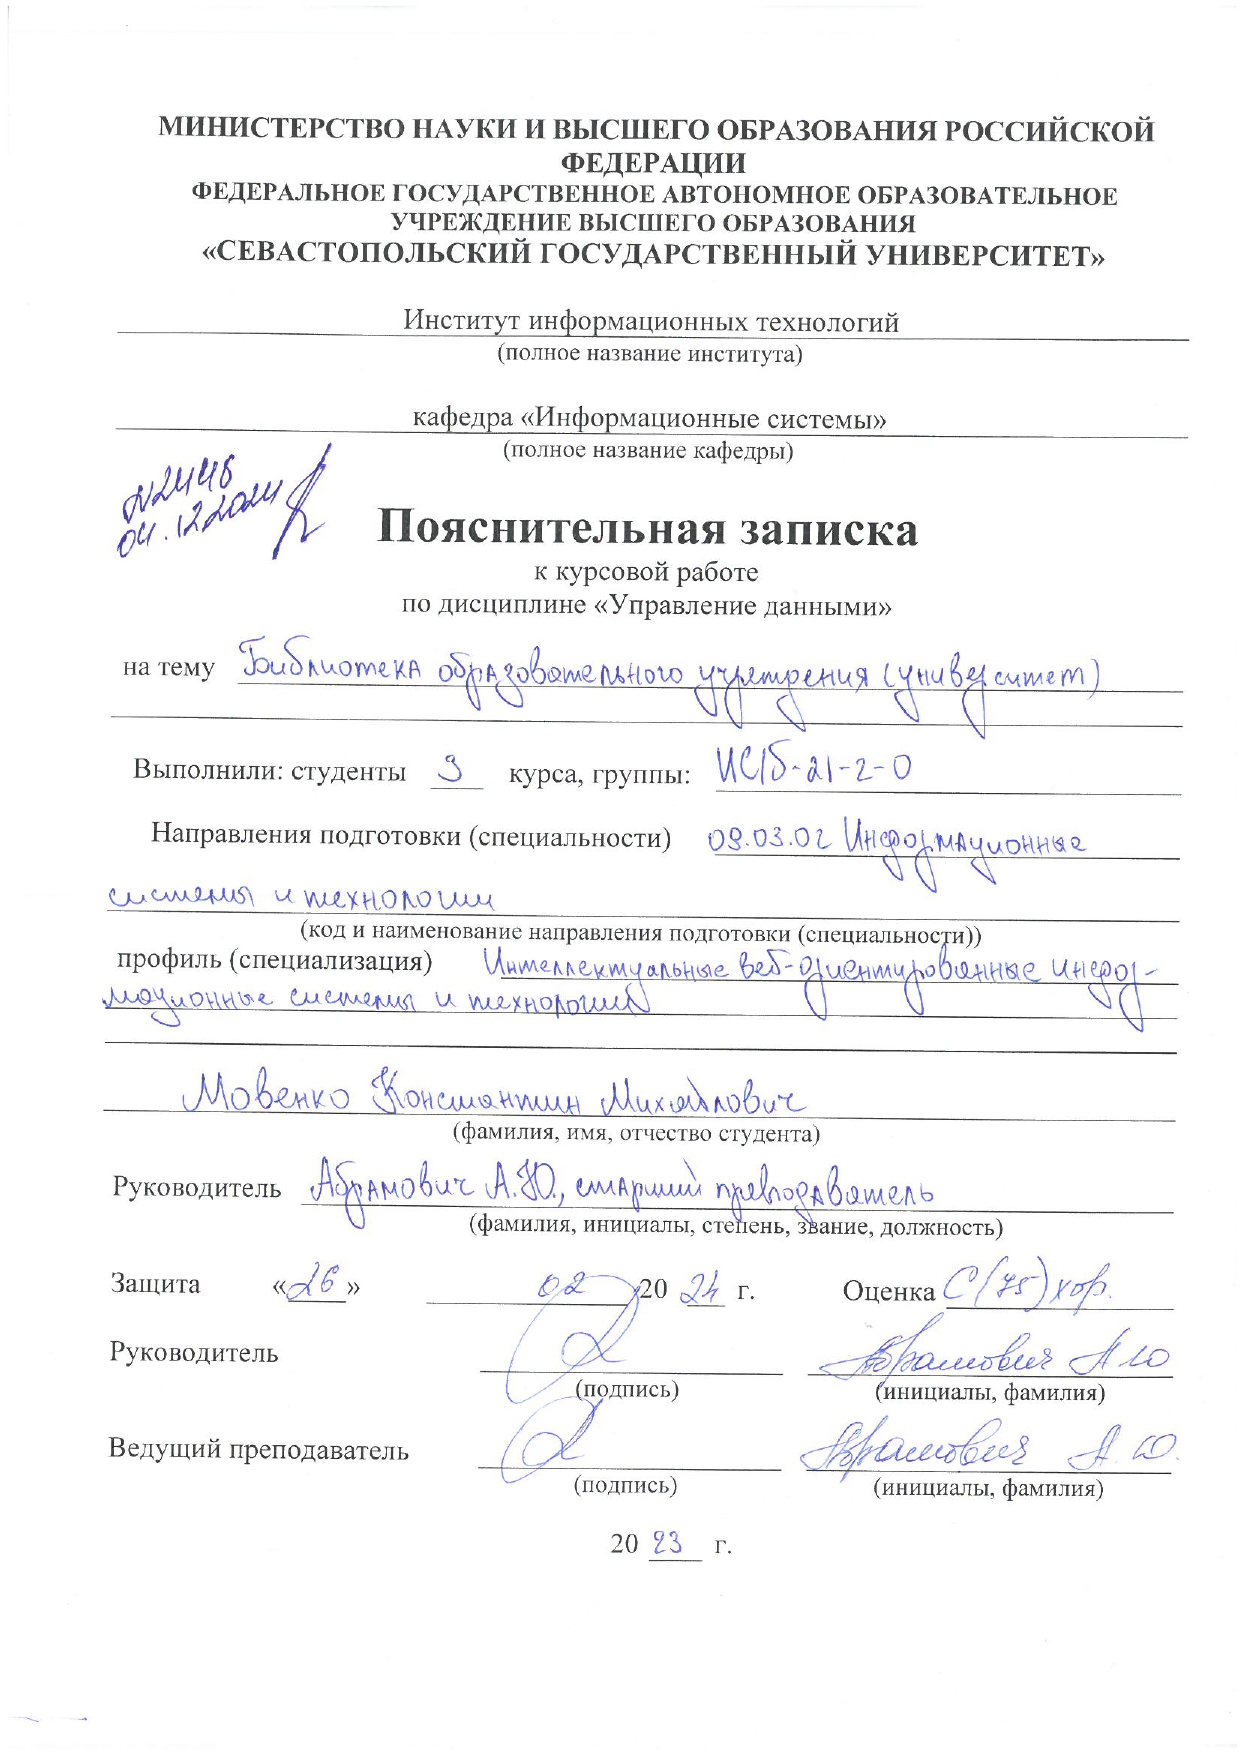 МИНИСТЕРСТВО НАУКИ И ВЫСШЕГО ОБРАЗОВАНИЯ РОССИЙСКОЙ
ФЕДЕРАЦИИ
ФЕДЕРАЛЬНОЕ ГОСУДАРСТВЕННОЕ АВТОНОМНОЕ ОБРАЗОВАТЕЛЬНОЕ
УЧРЕЖДЕНИЕ ВЫСШЕГО ОБРАЗОВАНИЯ
«СЕВАСТОПОЛЬСКИЙ ГОСУДАРСТВЕННЫЙ УНИВЕРСИТЕТ»
Институт информационных технологий
(полное название института)
кафедра «Информационные системы»
(полное название кафедры)
04.12.2024
Пояснительная записка
к курсовой работе
по дисциплине «Управление данными»
на тему Библиотека образовательного учреждения (университет)
Выполнили: студенты 3 курса, группы: ИС/б-21-2-О
Направления подготовки (специальности) 09.03.02 Информационные
системы и технологии
(код и наименование направления подготовки (специальности))
профиль (специализация) Интеллектуальные веб-ориентированные инфор-
мационные системы и технологии
Мовенко Константин Михайлович
(фамилия, имя, отчество студента)
Руководитель Абрамович А.Ю., старший преподаватель
(фамилия, инициалы, степень, звание, должность)
Защита «26» 02 20 24 г. Оценка С(75)хор.
Руководитель Абрамович А Ю
(подпись) (инициалы, фамилия)
Ведущий преподаватель Абрамович А Ю.
(подпись) (инициалы, фамилия)
20 23 г.